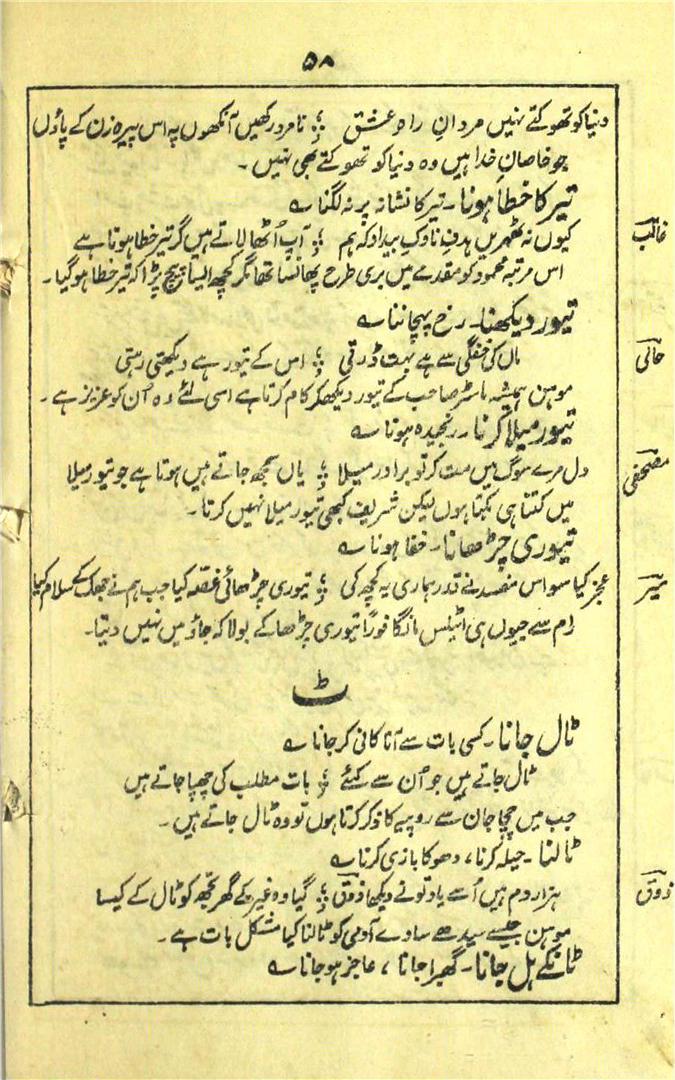 ۵۸
دنیا کو تھوکتے نہیں مردانِ راہِ عشق ؛ نامرد رکھیں آنکھوں پہ اس پیرہ زن کے پاؤں
جو خاصانِ خدا ہیں وہ دنیا کو تھوکتے بھی نہیں ۔
تیر کا خطا ہونا ۔ تیر کا نشانہ پر نہ لگنا ؎
غالب کیوں نہ ٹھہریں ہدفِ ناوکِ بیداد کہ ہم ؛ آپ اُٹھا لاتے ہیں گر تیر خطا ہوتا ہے
اس مرتبہ محمود کو مقدمے میں بری طرح پھانسا تھا مگر کچھ ایسا پیچ پڑا کہ تیر خطا ہو گیا ۔
تیور دیکھنا ۔ رخ پہچاننا ؎
حالی ماں کی خفگی سے ہے بہت ڈرتی ؛ اس کے تیور ہے دیکھتی رہتی
موہن ہمیشہ ماسٹر صاحب کے تیور دیکھکر کام کرتا ہے اسی لئے وہ اُن کو عزیز ہے ۔
تیور میلا کرنا ۔ رنجیدہ ہونا ؎
مصحفی دل مرے سوگ میں مت کر تو برادر میلا ؛ یاں سمجھ جاتے ہیں ہوتا ہے جو تیور میلا
میں کتنا ہی بکتا ہوں لیکن شریف کبھی تیور میلا نہیں کرتا ۔
تیوری چڑھانا ۔ خفا ہونا ؎
میر عجز کیا سو اس مفسد نے قدر ہماری یہ کچھ کی ؛ تیوری چڑھائی غصہ کیا جب ہم نے جھک کے سلام کیا
رام سے جیوں ہی اٹلس مانگا فوراً تیوری چڑھا کے بولا کہ جاؤ میں نہیں دیتا ۔
ٹ
ٹال جانا ۔ کسی بات سے آنا کانی کر جانا ؎
ٹال جاتے ہیں جو اُن سے کہئے ؛ بات مطلب کی چھپا جاتے ہیں
جب میں چچا جان سے روپیے کا ذکر کرتا ہوں تو وہ ٹال جاتے ہیں ۔
ٹالنا ۔ حیلہ کرنا ، دھوکا بازی کرنا ؎
ذوق ہزار دم ہیں اُسے یاد تو نے دیکھا ذوق ؛ گیا وہ غیر کے گھر تجھ کو ٹال کے کیسا
موہن جیسے سیدھے سادے آدمی کو ٹالنا کیا مشکل بات ہے ۔
ٹانکے ہل جانا ۔ گھبرا جانا ، عاجز ہو جانا ؎